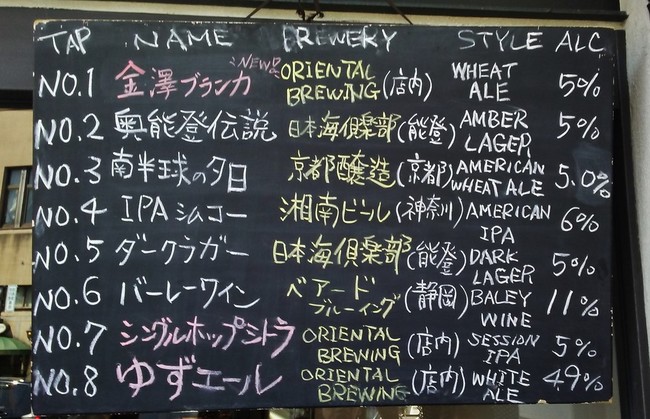 TAP NAME BREWERY STYLE ALC
NO.1 金澤ブランカ NEW ORIENTAL BREWING (店内) WHEAT ALE 5%
NO.2 奥能登伝説 日本海倶楽部 (能登) AMBER LAGER 5%
NO.3 南半球の夕日 京都醸造 (京都) AMERICAN WHEAT ALE 5.0%
NO.4 IPA シムコー 湘南ビール (神奈川) AMERICAN IPA 6%
NO.5 ダークラガー 日本海倶楽部 (能登) DARK LAGER 5%
NO.6 バーレーワイン ベアードブルーイング (静岡) BALEY WINE 11%
NO.7 シングルホップシトラ ORIENTAL BREWING (店内) SESSION IPA 5%
NO.8 ゆずエール ORIENTAL BREWING (店内) WHITE ALE 4%